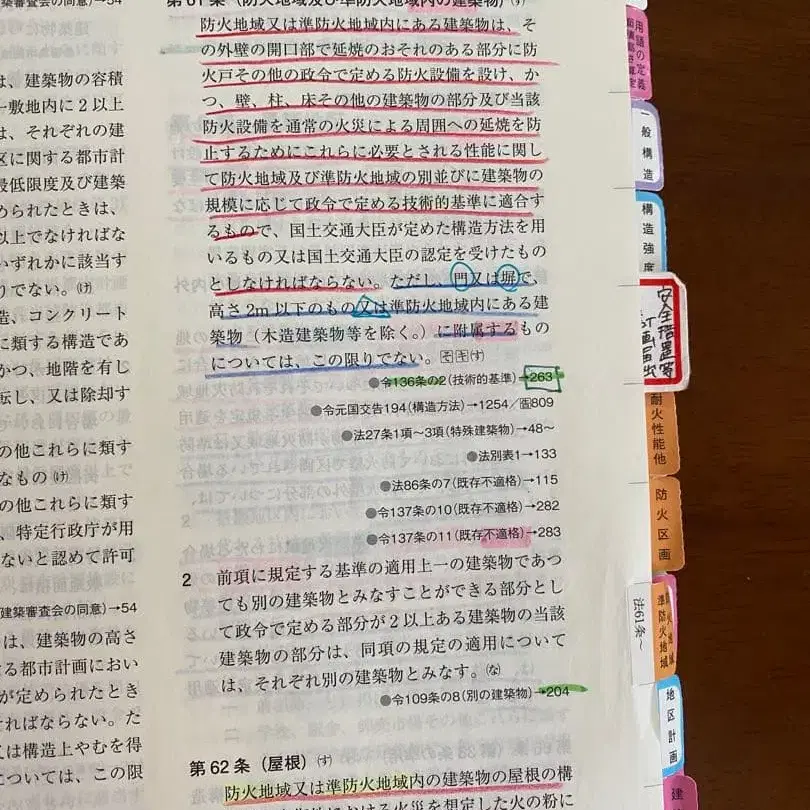 建築審査会の同意)→54
は、建築物の容積
一敷地内に2以上
は、それぞれの建
区に関する都市計
最低限度及び建築
められたときは、
以上でなければな
いずれかに該当す
りでない。(け)
造、コンクリート
に類する構造であ
かつ、地階を有し
転し、又は除却す
の他これらに類す
なもの(け)
の他これらに類す
、特定行政庁が用
ないと認めて許可
建築審査会の同意)→54
は、建築物の高さ
る都市計画におい
が定められたとき
ければならない。た
又は構造上やむを得
については、この限
第61条(防火地域及び準防火地域内の建築物)(す)
防火地域又は準防火地域内にある建築物は、そ
の外壁の開口部で延焼のおそれのある部分に防
火戸その他の政令で定める防火設備を設け、か
つ、壁、柱、床その他の建築物の部分及び当該
防火設備を通常の火災による周囲への延焼を防
止するためにこれらに必要とされる性能に関し
て防火地域及び準防火地域の別並びに建築物の
規模に応じて政令で定める技術的基準に適合す
るもので、国土交通大臣が定めた構造方法を用
いるもの又は国土交通大臣の認定を受けたもの
としなければならない。ただし、門又は塀で、
高さ2m以下のもの又は準防火地域内にある建
築物(木造建築物等を除く。)に附属するもの
については、この限りでない。
●令136条の2(技術的基準)→263
●令元国交告194(構造方法)→1254/告809
●法27条1項~3項(特殊建築物)→48~
●法別表1→133
●法86条の7(既存不適格)→115
●令137条の10(既存不適格)→282
●令137条の11(既存不適格)→283
2 前項に規定する基準の適用上一の建築物であつ
ても別の建築物とみなすことができる部分とし
て政令で定める部分が2以上ある建築物の当該
建築物の部分は、同項の規定の適用について
は、それぞれ別の建築物とみなす。(な)
●令109条の8(別の建築物)→204
第62条(屋根)(す)
防火地域又は準防火地域内の建築物の屋根の構
における火災を想定した火の粉に
用語の定義
一般構造
構造強度
安全措置等
計画届出
耐火性能他
防火区画
法61条~
準防火地域
地区計画
建